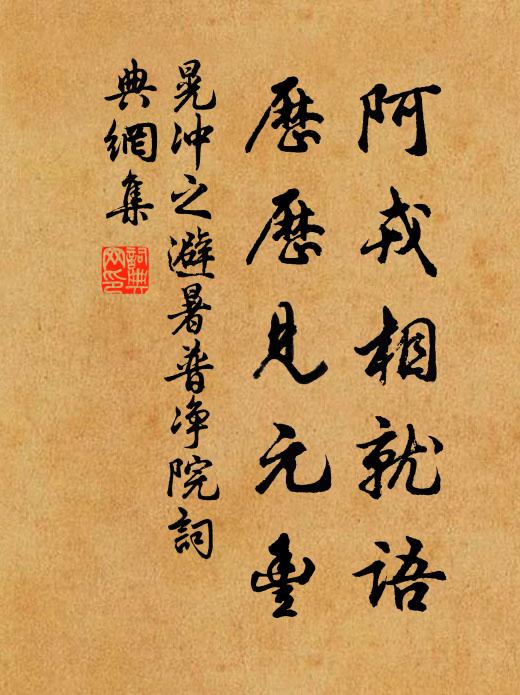 阿戎相就語
歷歷見元豐
晁沖之避暑普淨院詞
典網集
詞典
网印